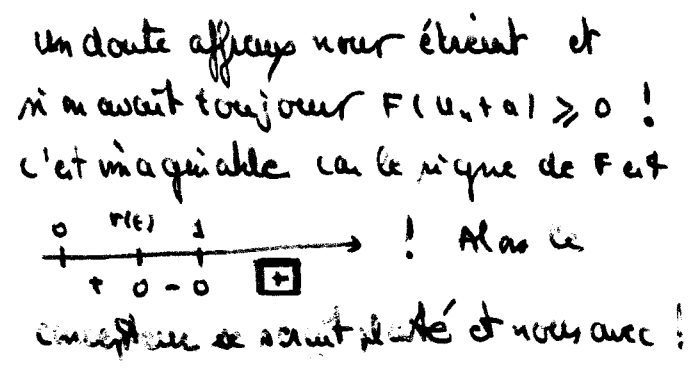 Un doute affreux nous étreint et
si on avait toujours F(Un+a) ⩾ 0 !
c'est imaginable car le signe de F est
0 r(t) 1 ! Alors le
+ 0 - 0 +
concepteur se serait planté et nous avec !